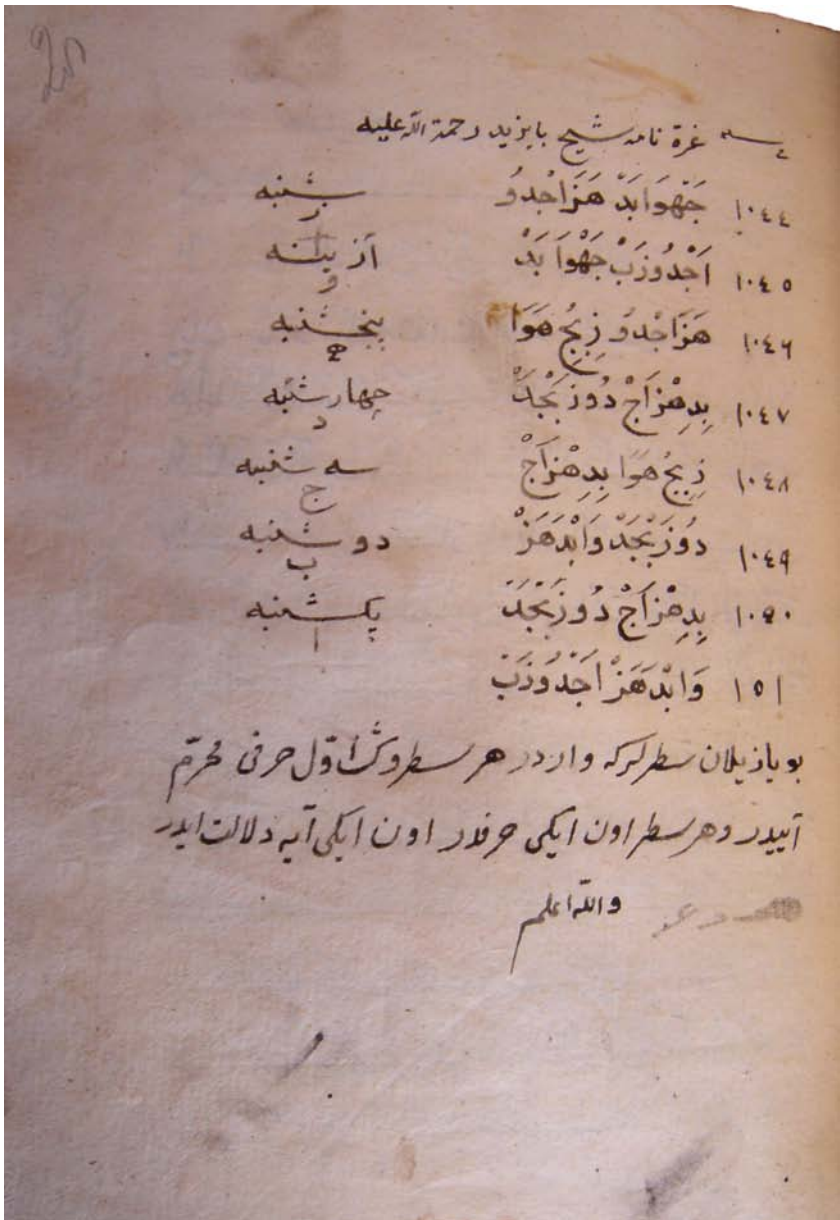 غرة نامه شيخ بايزيد رحمة الله عليه
١٠٤٤ جَهْوَا بَدْ هَزَا جْدُو شنبه ز
١٠٤٥ اَجْدُوزَبْ جَهْوَا بَدْ آزينه و
١٠٤٦ هَزَا جْدُو زِبِجُ هَوَا پنجشنبه ه
١٠٤٧ بِدِهْزَاَجْ دُوزَبْجَدْ چهارشنبه د
١٠٤٨ زِبِجُ هَوَا بِدِهْزَاَجْ سه شنبه ج
١٠٤٩ دُوزَبْجَدْ وَابْدَهَزْ دو شنبه ب
١٠٥٠ بِدِهْزَاَجْ دُوزَبْجَدْ يكشنبه ا
١٥١ وَابْدَهَزْ اَجْدُوزَبْ
بو يازيلان سطرلركه واردر هر سطروڭ اوّل حرفى محرّم
آييدر وهر سطر اون ايكى حرفدر اون ايكى آيه دلالت ايدر
والله اعلم